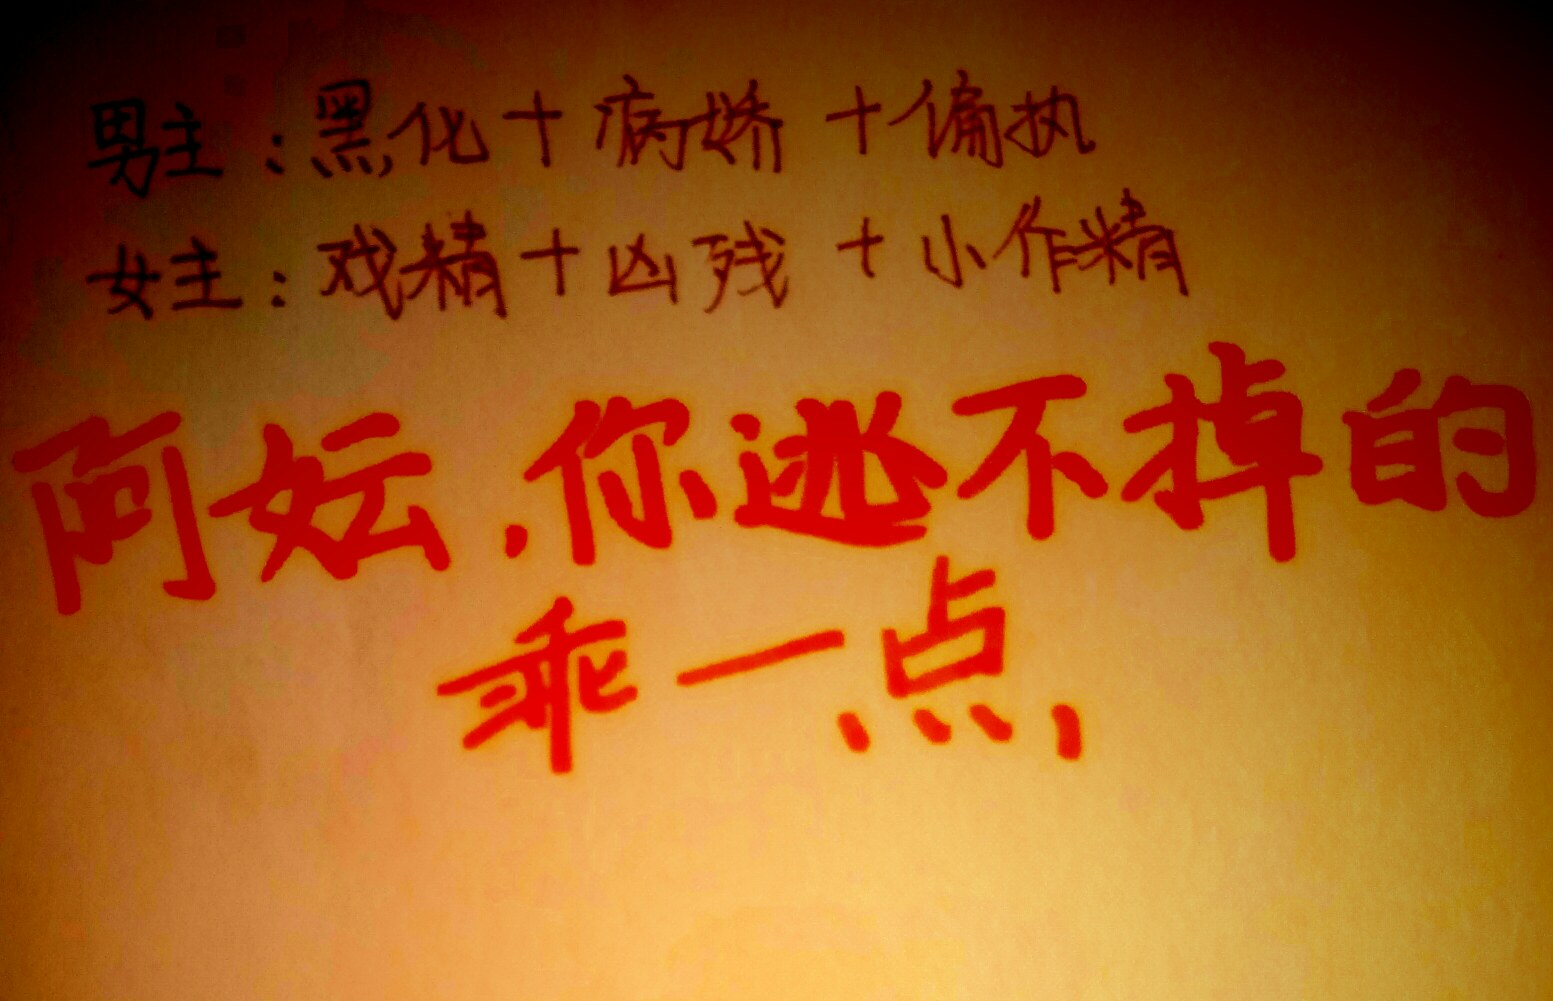 男主：黑化+病娇+偏执
女主：戏精+凶残+小作精
阿妘，你逃不掉的
乖一点